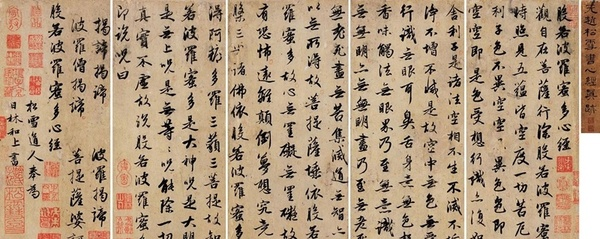 元趙松雪書心經真跡
般若波羅蜜多心經
觀自在菩薩行深般若波羅蜜多
時照見五蘊皆空度一切苦厄
舍利子色不異空空不異色色即是
空空即是色受想行識亦復如是
舍利子是諸法空相不生不滅不垢不
淨不增不減是故空中無色無受想
行識無眼耳鼻舌身意無色聲
香味觸法無眼界乃至無意識界
無無明亦無無明盡乃至無老死亦
無老死盡無苦集滅道無智亦無得
以無所得故菩提薩埵依般若波
羅蜜多故心無罣礙無罣礙故無
有恐怖遠離顛倒夢想究竟涅
槃三世諸佛依般若波羅蜜多故
得阿耨多羅三藐三菩提故知
般若波羅蜜多是大神咒是大明咒
是無上咒是無等等咒能除一切苦
真實不虛故說般若波羅蜜多咒
即說咒曰
揭諦揭諦 波羅揭諦
波羅僧揭諦 菩提薩婆訶
般若波羅蜜多心經
松雪道人奉為
日林和上書